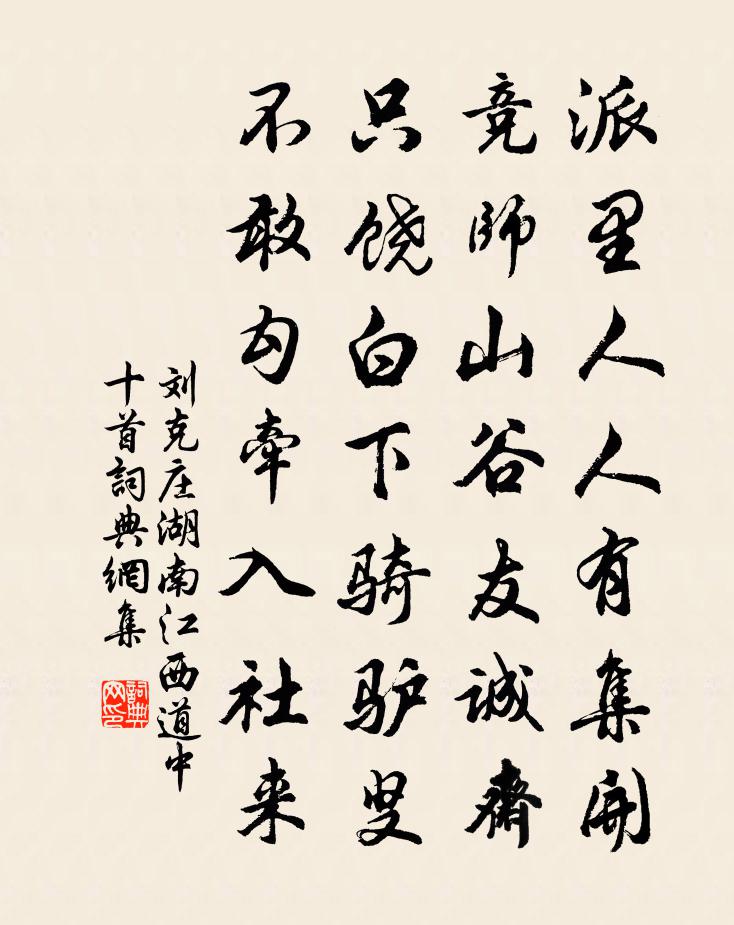 派里人人有集開
竞師山谷友诚齋
只饶白下骑驴叟
不敢勾牵入社来
刘克庄湖南江西道中
十首詞典網集
詞典
网印